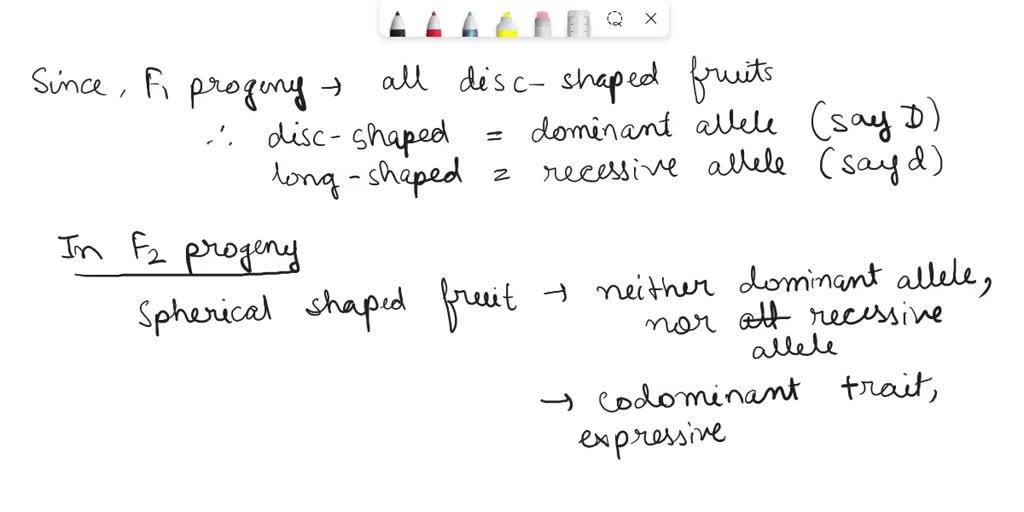 Since, F1 progeny → all disc-shaped fruits
∴ disc-shaped = dominant allele (say D)
long-shaped = recessive allele (say d)
In F2 progeny
Spherical shaped fruit → neither dominant allele,
nor all recessive
allele
→ codominant trait,
expressive